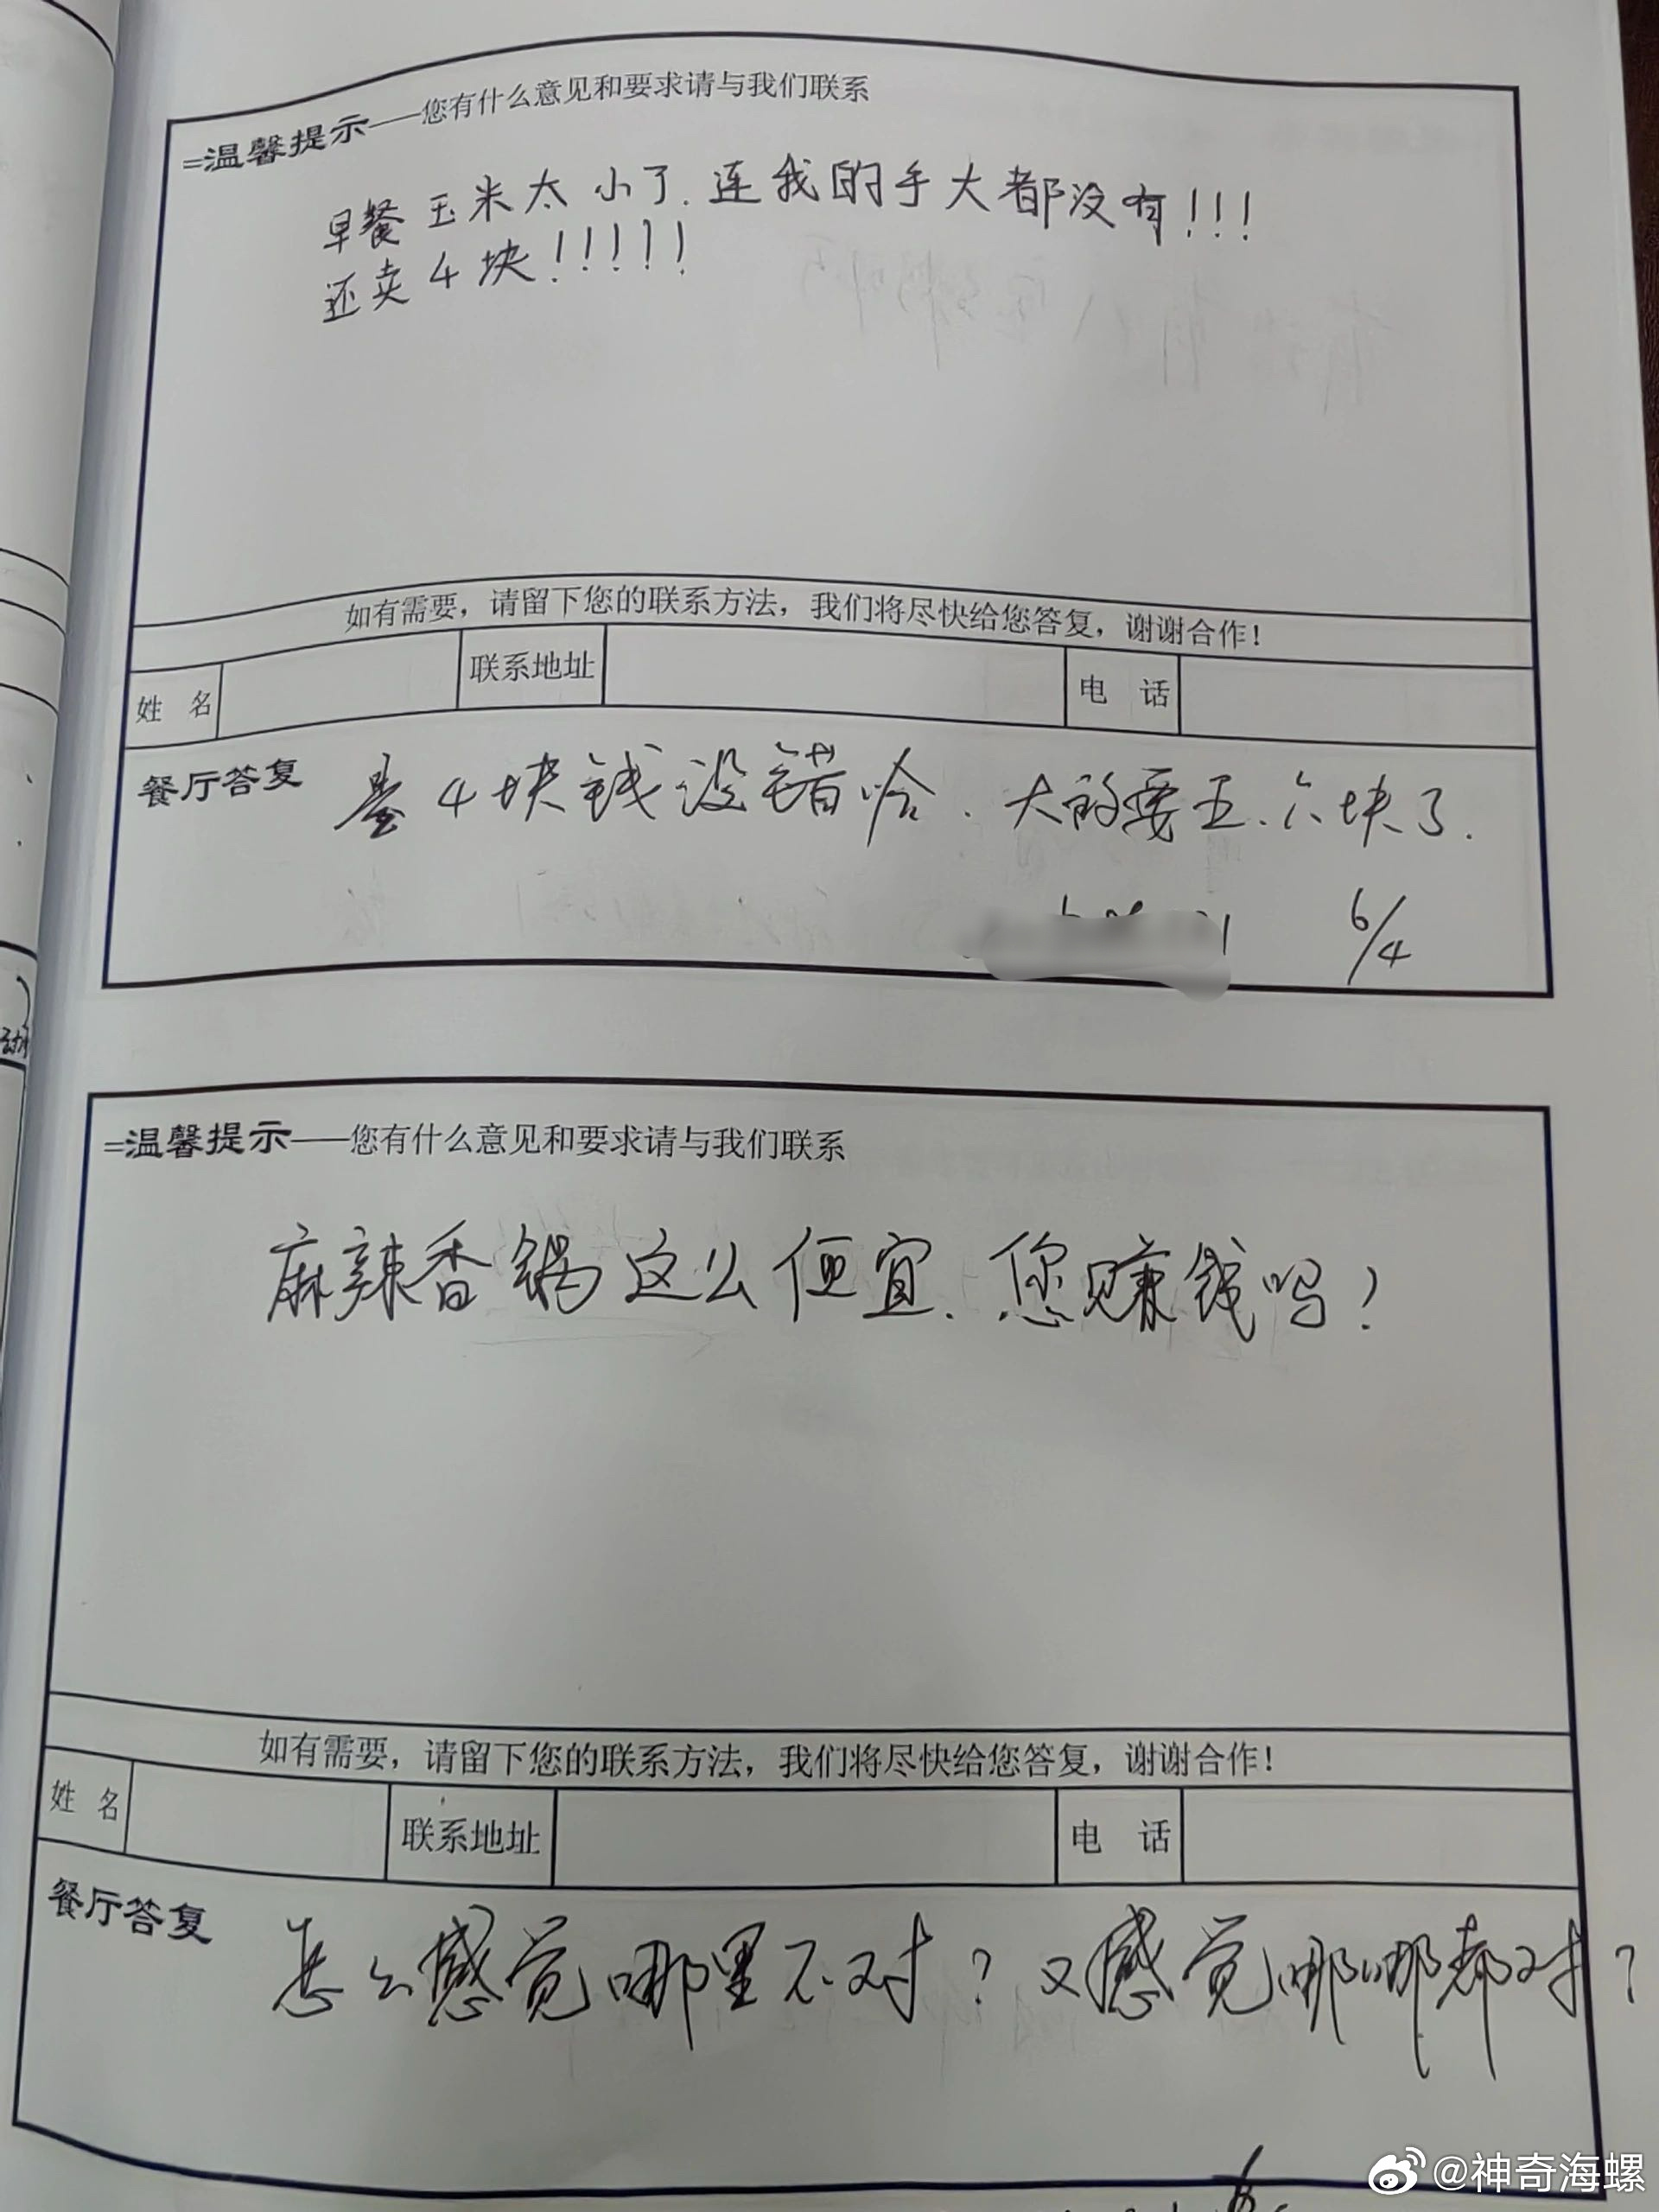 =温馨提示——您有什么意见和要求请与我们联系
早餐玉米太小了.连我的手大都没有!!!
还卖4块!!!!!
如有需要，请留下您的联系方法，我们将尽快给您答复，谢谢合作！
姓 名 联系地址 电 话
餐厅答复 4块钱没错哈.大的要五.六块了.
6/4
=温馨提示——您有什么意见和要求请与我们联系
麻辣香锅这么便宜.您赚钱吗?
如有需要，请留下您的联系方法，我们将尽快给您答复，谢谢合作！
姓 名 联系地址 电 话
餐厅答复 怎么感觉哪里不对?又感觉哪哪都对?
@神奇海螺